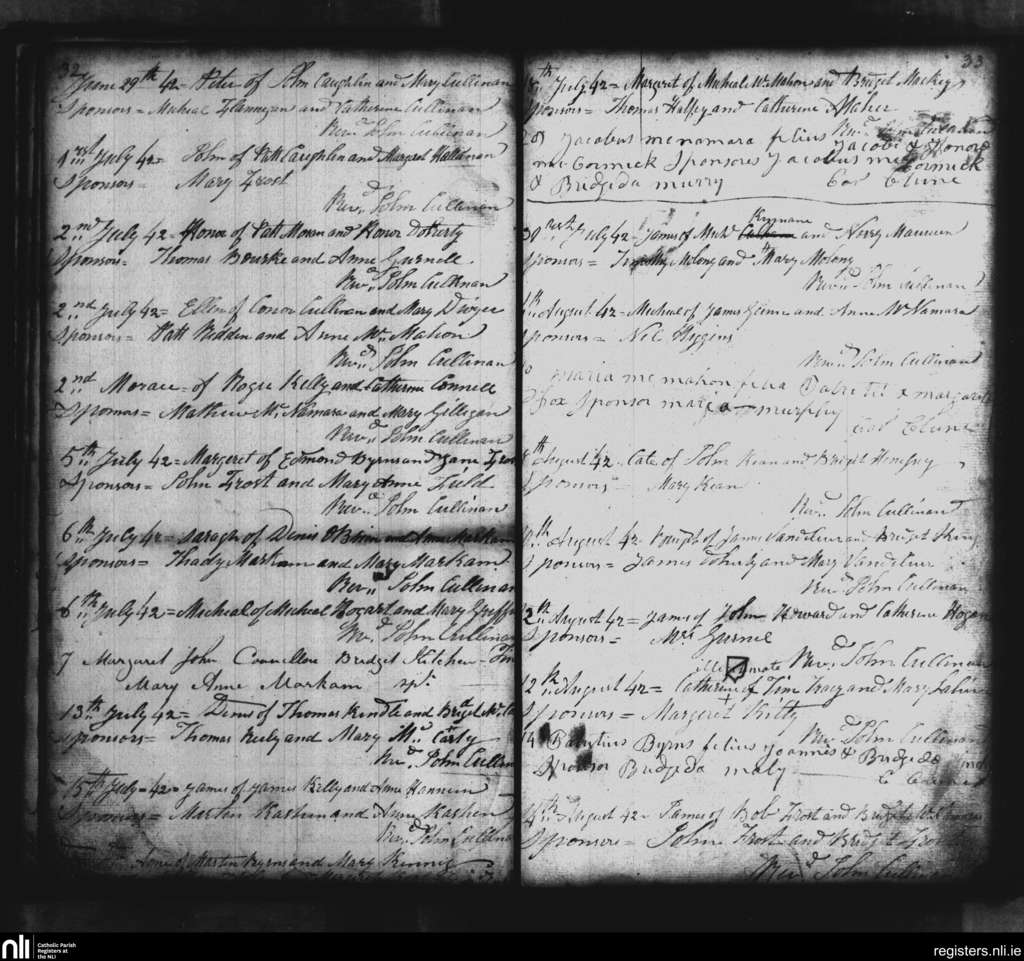 32
June 29th 42 = Peter of John Caughlin and Mary Cullinan
Sponsors = Micheal Flannegan and Catherine Cullinan
Revd. John Cullinan
1st July 42 = John of Patt Caughlin and Margret Hallanan
Sponsors = Mary Frost
Revd. John Cullinan
2nd July 42 = Honor of Patt Moran and Honor Doherty
Sponsors = Thomas Bourke and Anne Gurnell
Revd. John Cullinan
2nd July 42 = Ellen of Conor Cullinan and Mary Dwyer
Sponsors = Patt Hidden and Anne McMahon
Revd. John Cullinan
2nd of Roger Kelly and Catherine Connell
Sponsors = Mathew McNamara and Mary Gilligan
Revd. John Cullinan
5th July 42 = Margeret of Edmond Byrns and Jane Frost
Sponsors = John Frost and Mary Anne Field
Revd. John Cullinan
6th July 42 = Saragh of Denis O Brien and Anne Markam
Sponsors = Thady Markam and Mary Markam
Revd. John Cullinan
8th July 42 = Micheal of Micheal Hogart and Mary Griffin
Revd. John Cullinan
7 Margaret John Connellon Bridget Kitchen
Mary Anne Markam
13th July 42 = Denis of Thomas Kindle and Bridget
Sponsors = Thomas and Mary McCarty
Revd. John Cullinan
15th July = 42 = James of James Kelly and Anne Hanneen
Sponsors = Martin Kasheen and Anne Kasheen
Revd. John Cullinan
Anne of Martin Byrns and Mary
33
18th July 42 = Margaret of Micheal McMahon and Bridget Mackey
Sponsors = Thomas Halpy and Catherine Maher
Revd. John Cullinan
Jacobus mcnamara filius Jacobi & Honora
mcCormick Sponsores Jacobus mcCormick
& Bridgeda murry Cor Clune
30th July 42 = James of Michl. and Norry Mauneen
Sponsors = Timothy Molony and Mary Molony
Revd. John Cullinan
August 42 = Micheal of James Ginne and Anne McNamara
Sponsors = Nel Higgins
Revd. John Cullinan
maria mcmahon filia Patricii & margarita
Fox Sponsor maria murphy
Cor Clune
8th August 42 = Cate of John Kean and Bridget Hempsy
Sponsors = Mary Kean
Revd. John Cullinan
August 42 = Joseph of James Vandeleur and Bridget
Sponsors = James Doherty and Mary Vandeleur
Revd. John Cullinan
12th August 42 = James of John Howard and Catherine Hogan
Sponsors = Mrs Gurnel
Revd. John Cullinan
illegitimate
12th August 42 = Catherine of Tim Tracy and Mary
Sponsors = Margeret Kitty
Revd. John Cullinan
14 Patritius Byrns filius Joannis & Bridgeda
Sponsor Bridgeda maly
August 42 = James of Bob Frost and Bridget
Sponsors = John Frost and Bridget Frost
Revd. John Cullinan
nli
Catholic Parish
Registers at
the NLI
registers.nli.ie